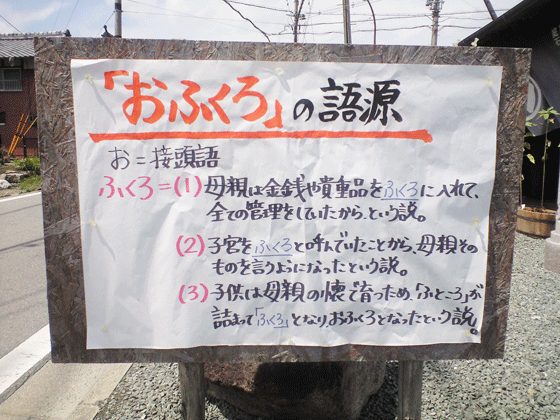 「おふくろ」の語源
お＝接頭語
ふくろ＝(1)母親は金銭や貴重品をふくろに入れて、
全ての管理をしていたから、という説。
(2)子宮をふくろと呼んでいたことから、母親その
ものを言うようになったという説。
(3)子供は母親の懐で育つため、「ふところ」が
詰まって「ふくろ」となり、おふくろとなったという説。